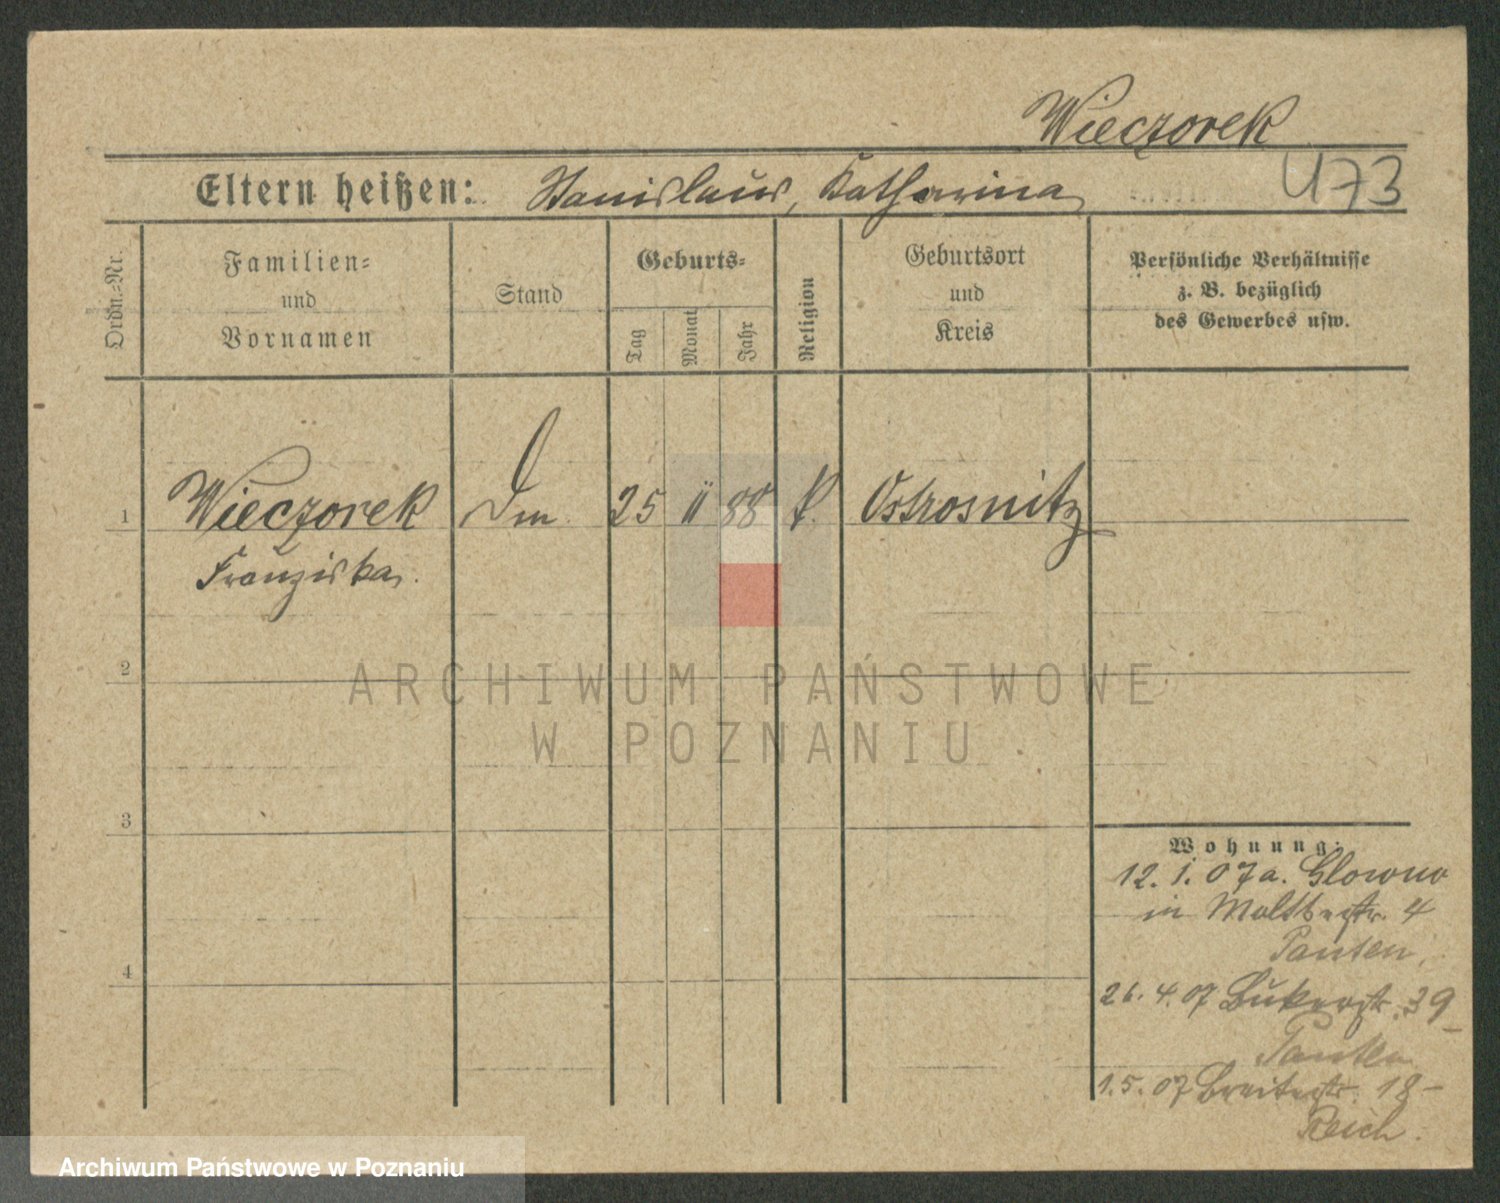 Wieczorek
473
Eltern heißen: Stanislaus, Katharina
Ordn.-Nr.
Familien-
und
Vornamen
Stand
Geburts-
Tag
Monat
Jahr
Religion
Geburtsort
und
Kreis
Persönliche Verhältnisse
z. B. bezüglich
des Gewerbes usw.
1 Wieczorek Dm. 25 II 88 k. Ostrosnitz
Franziska.
2
ARCHIWUM PAŃSTWOWE
W POZNANIU
3
Wohnung:
12. 1. 07 a. Glowno
in Moltkestr. 4
4
26. 4. 07 Bukerstr. 39
1. 5. 07 Breitestr. 18
Reich.
Archiwum Państwowe w Poznaniu